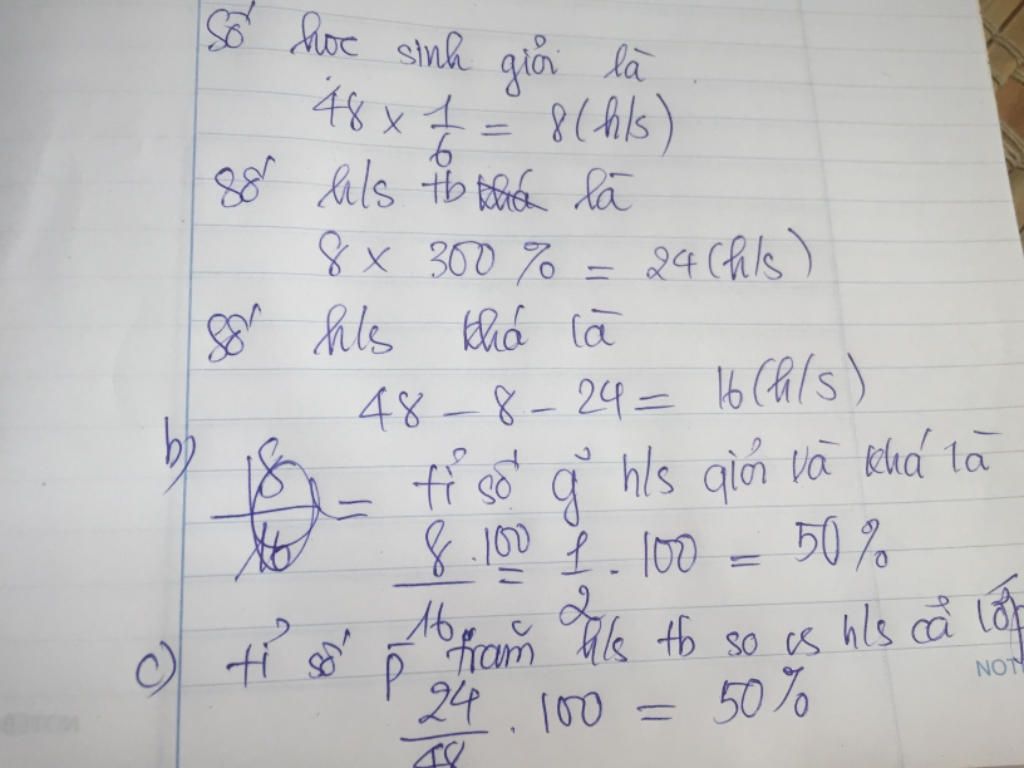 Số học sinh giỏi là
48 × 1/6 = 8 (h/s)
Số h/s tb khá là
8 × 300 % = 24 (h/s)
Số h/s khá là
48 - 8 - 24 = 16 (h/s)
b) 8/16 = tỉ số g h/s giỏi và khá là
8/16 . 100 = 1/2 . 100 = 50 %
c) tỉ số p trăm h/s tb so vs h/s cả lớp
24/48 . 100 = 50 %
NOT